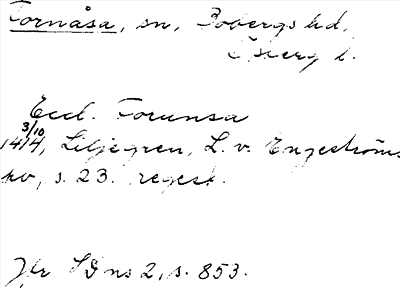 Fornåsa, sn, Bobergs hd,
Östergl.
Eccl. Forunsa
14 3/10 14, Liljegren, L. v. Engeströms
s. 23. regest.
Jfr SD ns 2, s. 853.